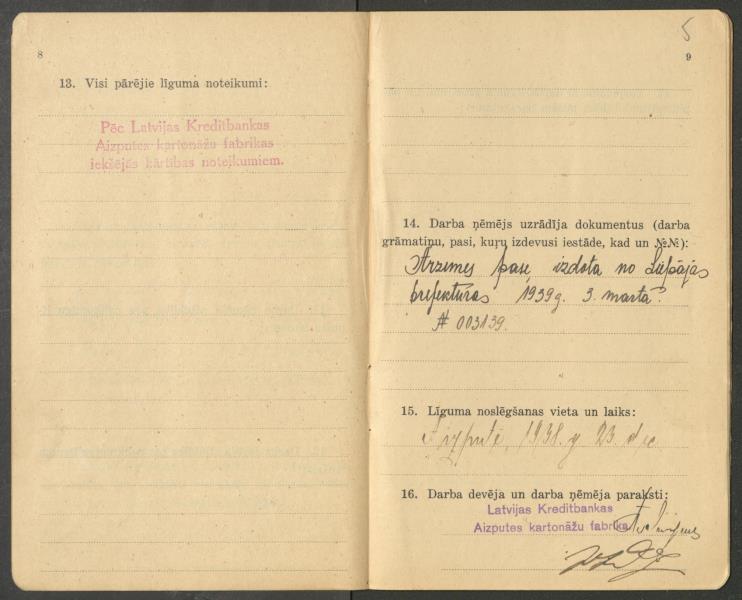 8
13. Visi pārējie līguma noteikumi:
Pēc Latvijas Kreditbankas
Aizputes kartonāžu fabrikas
iekšējās kārtības noteikumiem.
5
9
14. Darba ņēmējs uzrādīja dokumentus (darba
grāmatiņu, pasi, kuŗu izdevusi iestāde, kad un №№):
Ārzemes pase, izdota no Liepājas
prefektūras 1939g. 3. martā.
# 003139.
15. Līguma noslēgšanas vieta un laiks:
Aizputē, 1938. g. 23. dec.
16. Darba devēja un darba ņēmēja paraksti:
Latvijas Kreditbankas
Aizputes kartonāžu fabrika